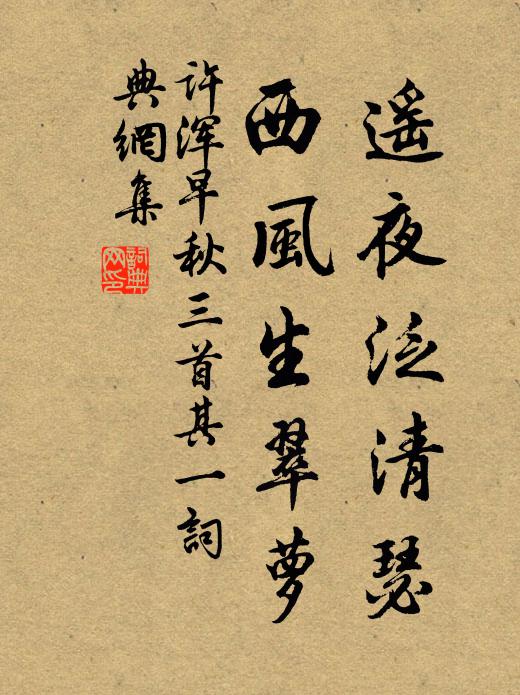 遥夜泛清瑟
西風生翠萝
許渾早秋三首其一詞
典網集
詞典
网印